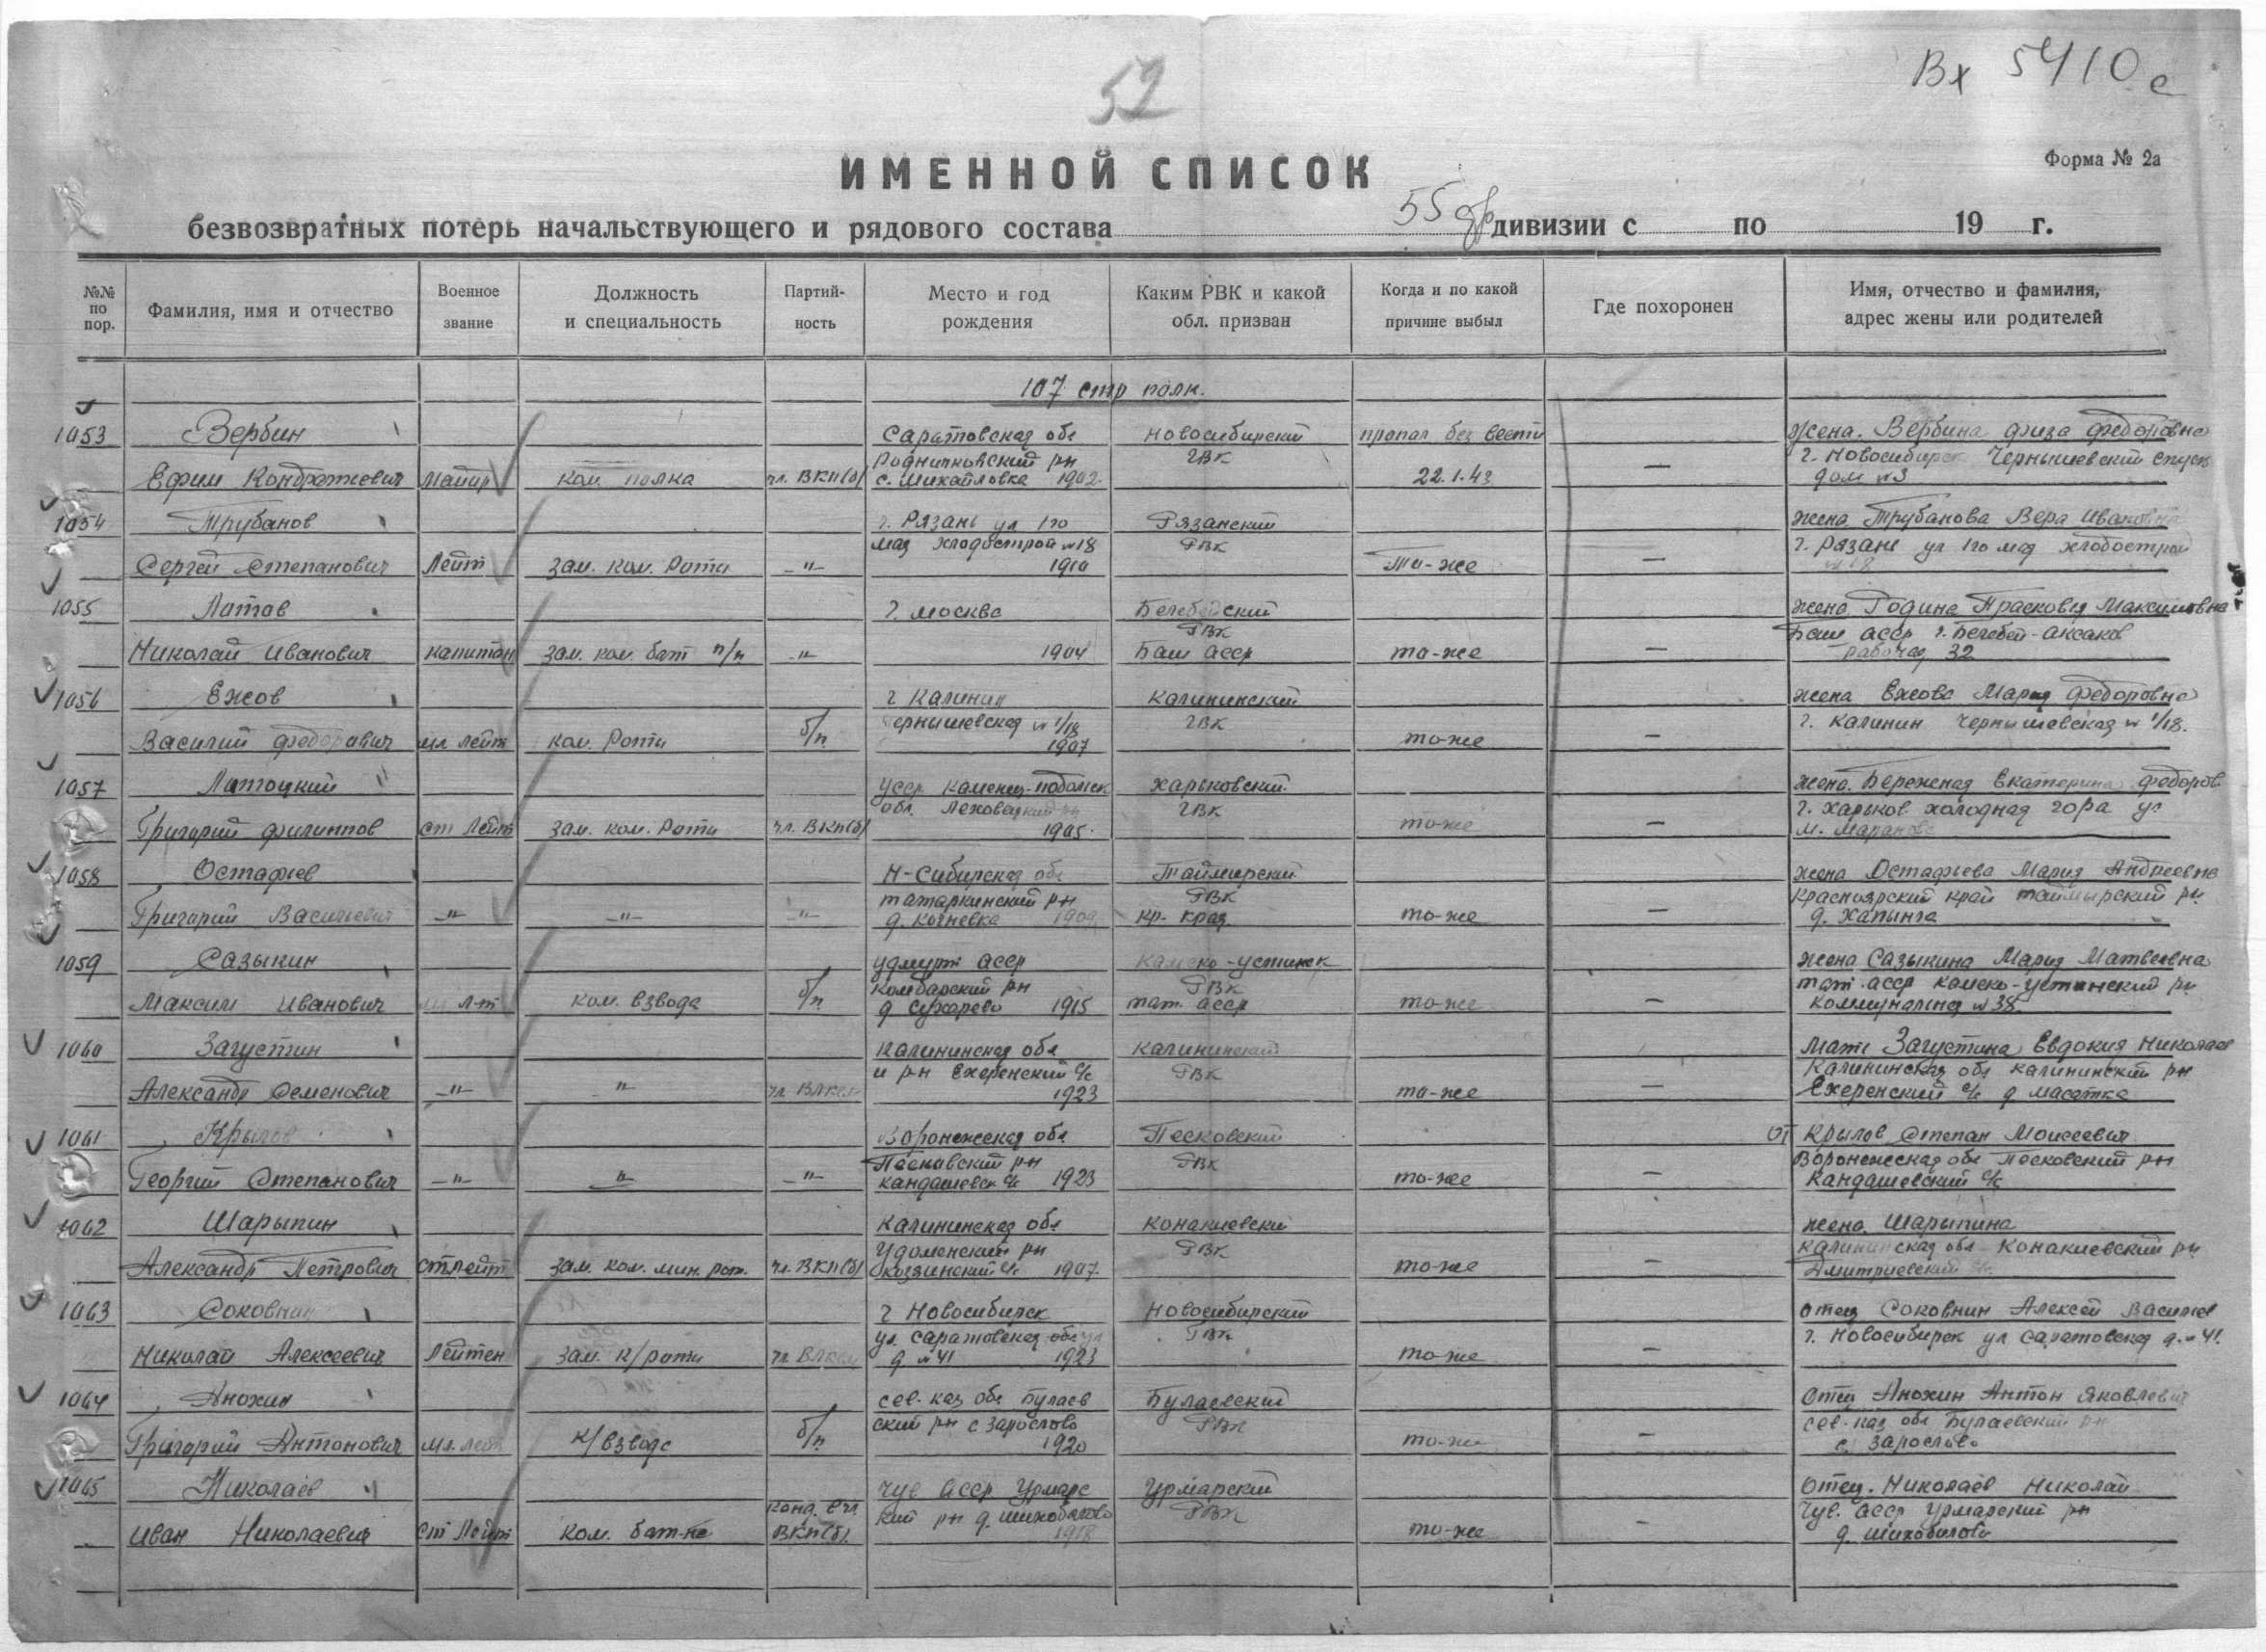 52
Вх 5410 с
Форма № 2а
ИМЕННОЙ СПИСОК
безвозвратных потерь начальствующего и рядового состава 55 дивизии с по 19 г.
№№ по пор.
Фамилия, имя и отчество
Военное звание
Должность и специальность
Партий-ность
Место и год рождения
Каким РВК и какой обл. призван
Когда и по какой причине выбыл
Где похоронен
Имя, отчество и фамилия, адрес жены или родителей
107 стр полк.
1053 Вербин Саратовская обл Новосибирский пропал без вести Жена. Вербина Федоровна
Родничковский рн ГВК г. Новосибирск Чернышевский спуск
Ефим Кондратьевич майор ком. полка чл. ВКП(б) с. Михайловка 1902 22.1.43 — дом №3
1054 Трубанов г. Рязань ул Рязанский жена Трубанова Вера Ивановна
№18 РВК г. Рязань ул
Сергей Степанович Лейт зам. ком. Роты -"- 1910 то-же —
1055 Латов г. Москва Белебейский жена Родина Прасковья Максимовна
РВК Баш асср г. Белебей-Аксаков
Николай Иванович капитан зам. ком. бат п/ч -"- 1904 Баш асср то-же — рабочая 32
1056 Ежов г Калинин Калининский жена Ежова Мария Федоровна
Чернышевская № 1/18 ГВК г. Калинин Чернышевская № 1/18.
Василий Федорович мл лейт ком. Роты б/п 1907 то-же —
1057 Латоцкий УССР Каменец-подольск Харьковский жена. Бережная Екатерина Федоров
обл. ГВК г. Харьков холодная гора ул
Григорий Филиппов ст Лейт зам. ком. Роты чл. ВКП(б) 1905 то-же — М.
1058 Остафьев Н-Сибирская обл Таймырский жена Остафьева Мария Андреевна
татаркинский рн РВК Красноярский край таймырский рн
Григорий Васильевич -"- -"- -"- д. 1909 кр. край то-же — д.
1059 Сазыкин удмурт асср Камско-устинск жена Сазыкина Мария Матвеевна
Камбарский рн РВК тат. асср камско-устинский рн
Максим Иванович ком. взвода б/п д Сухарево 1915 тат. асср то-же — коммунальная №38
1060 Загустин Калининская обл Калининский Мать Загустина Евдокия Николаев
и рн Ехеренский с/с РВК Калининская обл калининский рн
Александр Семенович -"- " то-же — Ехеренский с/с д
1923
1061 Крылов Воронежская обл Песковский от Крылов Степан Моисеевич
Песковский рн РВК Воронежская обл Песковский рн
Георгий Степанович -"- " -"- Кандашевск с/с 1923 то-же — Кандашевский с/с
1062 Шарыпин Калининская обл Конаковский жена. Шарыпина
Удомский рн РВК Калининская обл Конаковский рн
Александр Петрович ст лейт зам. ком. мин. рот. чл. ВКП(б) с/с 1907 то-же — Дмитриевский
1063 Соковнин г Новосибирск Новосибирский отец Соковнин Алексей Василье
ул. Саратовская г. Новосибирск ул Саратовская д. № 41.
Николай Алексеевич Лейтен зам. к/роты д №41 1923 то-же —
1064 Анохин сев. каз обл Булаев Булаевский Отец Анохин Антон Яковлевич
ский рн с Зарослово РВК сев. каз обл Булаевский рн
Григорий Антонович мл. лейт к/взвода б/п 1920 то-же — с. Зарослово
1065 Николаев Чув асср Урмарс Урмарский Отец. Николаев Николай
канд. в чл. кий рн д. Шихобылово РВК Чув. асср Урмарский рн
Иван Николаевич ст Лейт ком. бат-на ВКП(б). 1918 то-же — д. Шихобылово